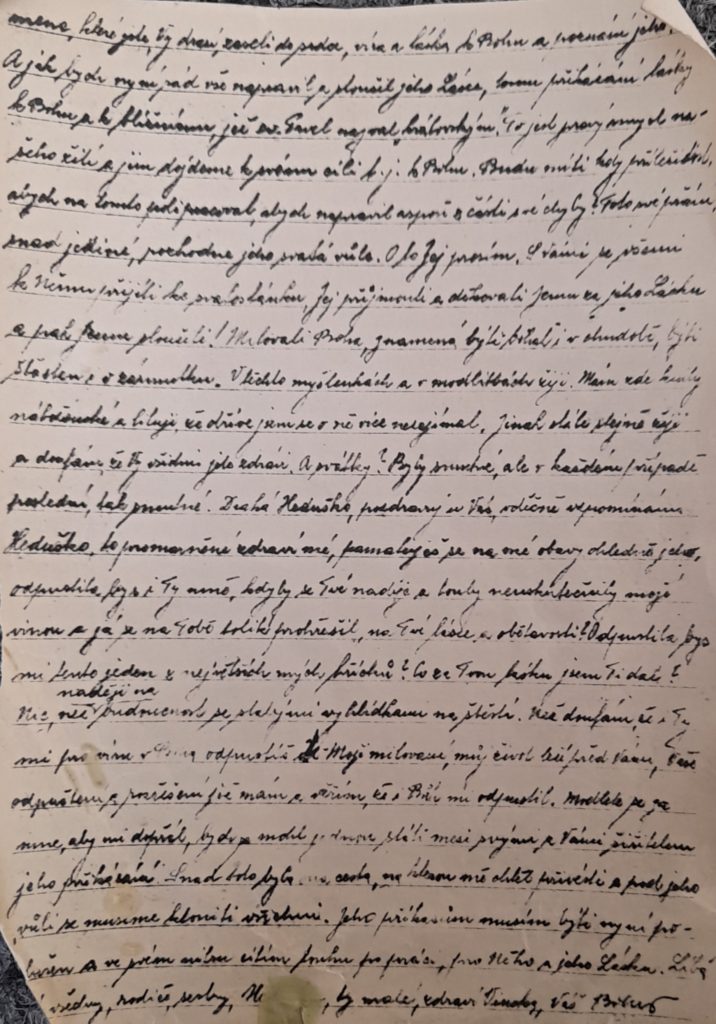 mena, které jste, Vy drazí, zaseli do srdce, víra a láska k Bohu a poznání jeho.
A jak bych nyní rád vše napravil a sloužil jeho Lásce, tomu přikázání lásky
k Bohu a k bližnímu, jež sv. Pavel nazval „královským“. To jest pravý smysl na-
šeho žití a jím dojdeme k svému cíli t. j. k Bohu. Budu míti kdy příležitost,
abych na tomto poli pracoval, abych napravil aspoň z části své chyby? Toto své přání,
snad jediné, rozhodne jeho svatá vůle. O to Jej prosím. S Vámi se všemi
k Němu přijíti ke svatostánku, Jej přijmouti a děkovati Jemu za jeho Lásku
a pak Jemu sloužiti! Milovati Boha, znamená býti bohat i v chudobě, býti
šťasten i v zármutku. V těchto myšlenkách a v modlitbách žiji. Mám zde knihy
náboženské a lituji, že dříve jsem se o ně více nezajímal. Jinak stále stejně žiji
a doufám, že Vy všichni jste zdrávi. A svátky? Byly smutné, ale v každém případě
poslední, tak smutné. Drahá Heduško, pozdravuj u Vás, vděčně vzpomínám.
Heduško, to promarněné zdraví mé, pamatuješ se na mé obavy ohledně jeho,
odpustila bys i Ty mně, kdyby se Tvé naděje a touhy neuskutečnily mojí
vinou a já se na Tobě tolik prohřešil, na Tvé lásce a obětavosti? Odpustila bys
mi tento jeden z největších mých hříchů? Co za Tvou lásku jsem Ti dal?
naději na
Nic, než budoucnost se slabými vyhlídkami na štěstí. Než doufám, že i Ty
mi pro víru v Boha odpustíš. Moji milovaní, můj život leží před Vámi, Vaše
odpuštění a rozřešení již mám a věřím, že i Bůh mi odpustil. Modlete se za
mne, aby mi dopřál, bych mohl jednou státi mezi svými a Vámi šiřitelem
jeho přikázání. Snad toto byla cesta, na kterou mě chtěl přivésti a pod jeho
vůli se musíme kloniti všichni. Jeho příkazům musím býti nyní po-
slušen a ve svém nitru cítím touhu po práci, pro Něho a jeho Lásku. Líbá
všechny, rodiče, sestry, ty malé, zdraví Váš